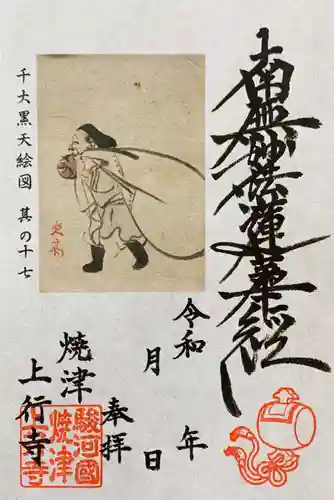 南無妙法蓮華経
令和 年
月 日
奉拝
焼津
上行寺
千大黒天絵図 其の十七
駿河國
焼津
上行寺